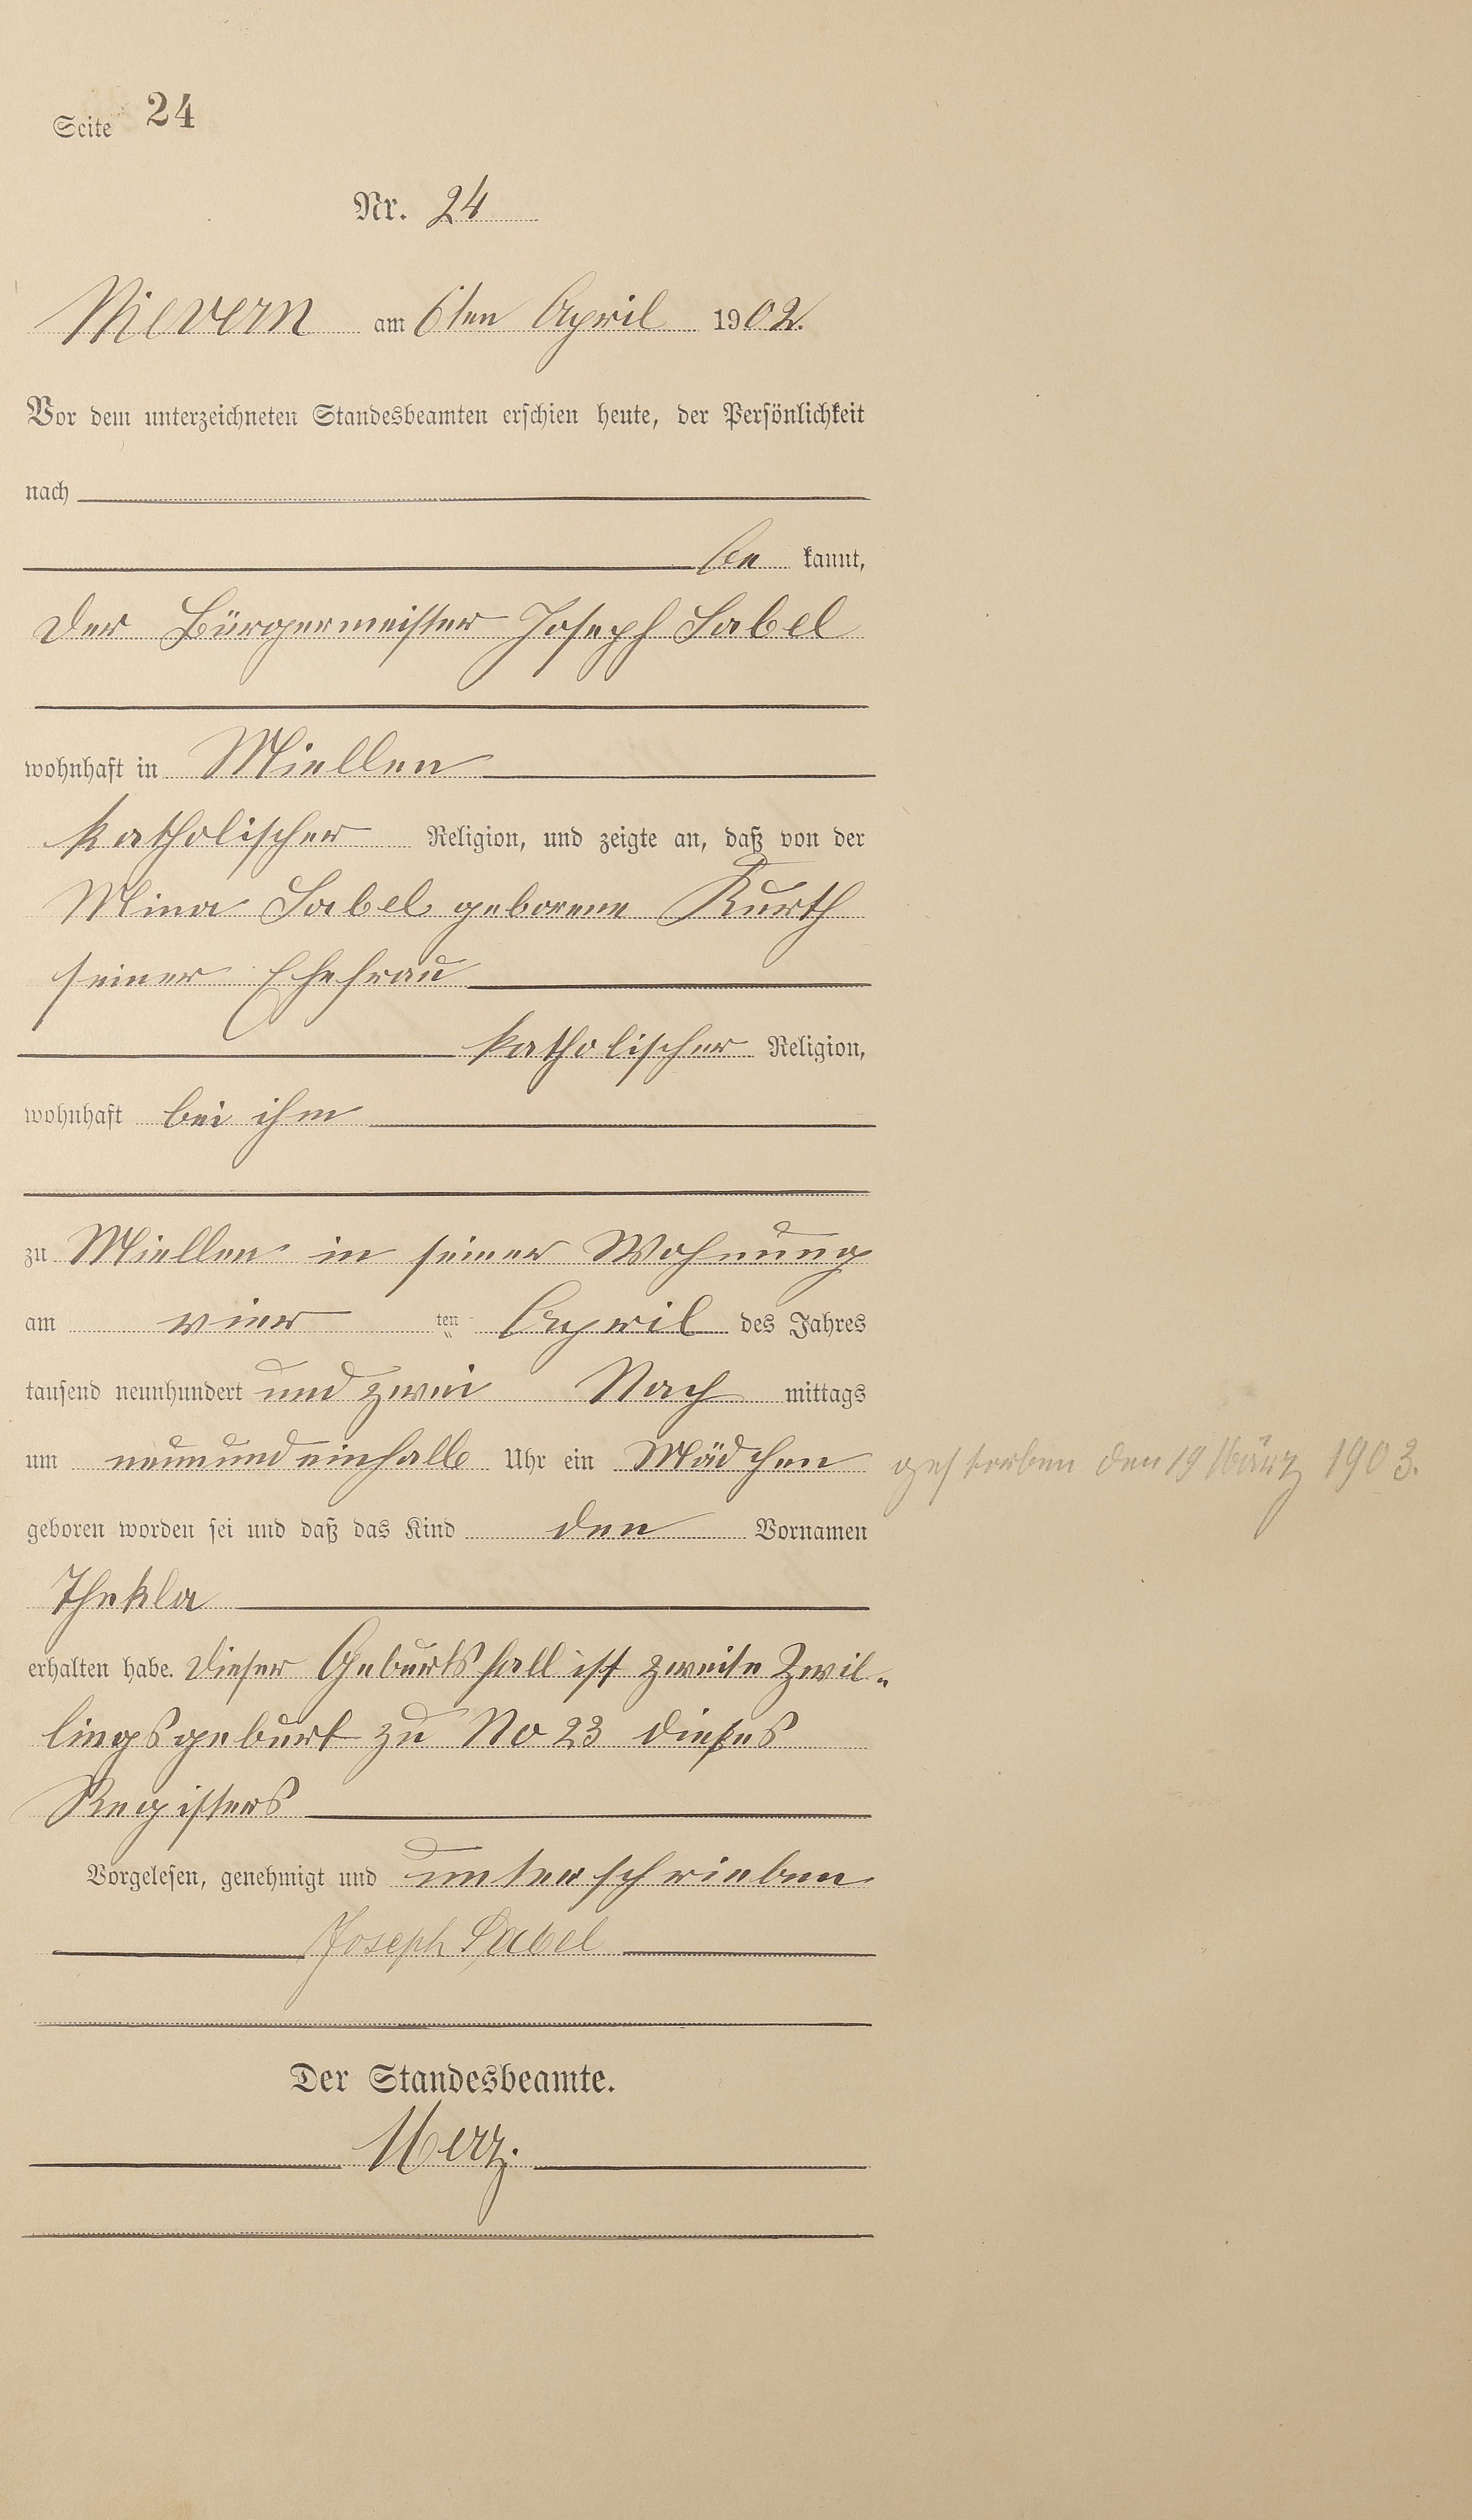 Seite 24
Nr. 24
Nievern am 6ten April 1902.
Vor dem unterzeichneten Standesbeamten erschien heute, der Persönlichkeit
nach
be kannt,
der Bürgermeister Joseph Sabel
wohnhaft in Miellen
katholischer Religion, und zeigte an, daß von der
Mina Sabel geborene Kurth
seiner Ehefrau
katholischer Religion,
wohnhaft bei ihm
zu Miellen in seiner Wohnung
am vier ten April des Jahres
tausend neunhundert und zwei Nach mittags
um neunundeinhalb Uhr ein Mädchen gestorben den 19 März 1903.
geboren worden sei und daß das Kind den Vornamen
Thekla
erhalten habe. Dieser Geburtsfall ist zweite Zwil-
lingsgeburt zu No 23 dieses
Registers
Vorgelesen, genehmigt und unterschrieben
Joseph Sabel
Der Standesbeamte.
Merz.